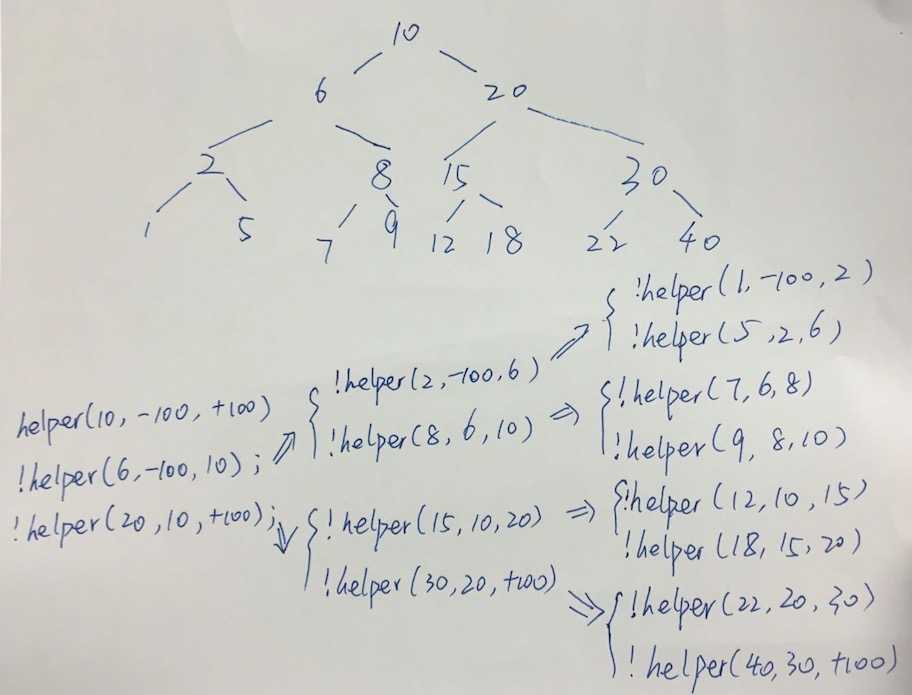 10
6 20
2 8 15 30
1 5 7 9 12 18 22 40
!helper(1,-100,2)
!helper(5,2,6)
!helper(2,-100,6)
!helper(8,6,10) ⇒
!helper(7,6,8)
!helper(9,8,10)
helper(10,-100,+100)
!helper(6,-100,10);
!helper(20,10,+100);
!helper(15,10,20) ⇒
!helper(30,20,+100)
!helper(12,10,15)
!helper(18,15,20)
!helper(22,20,30)
!helper(40,30,+100)